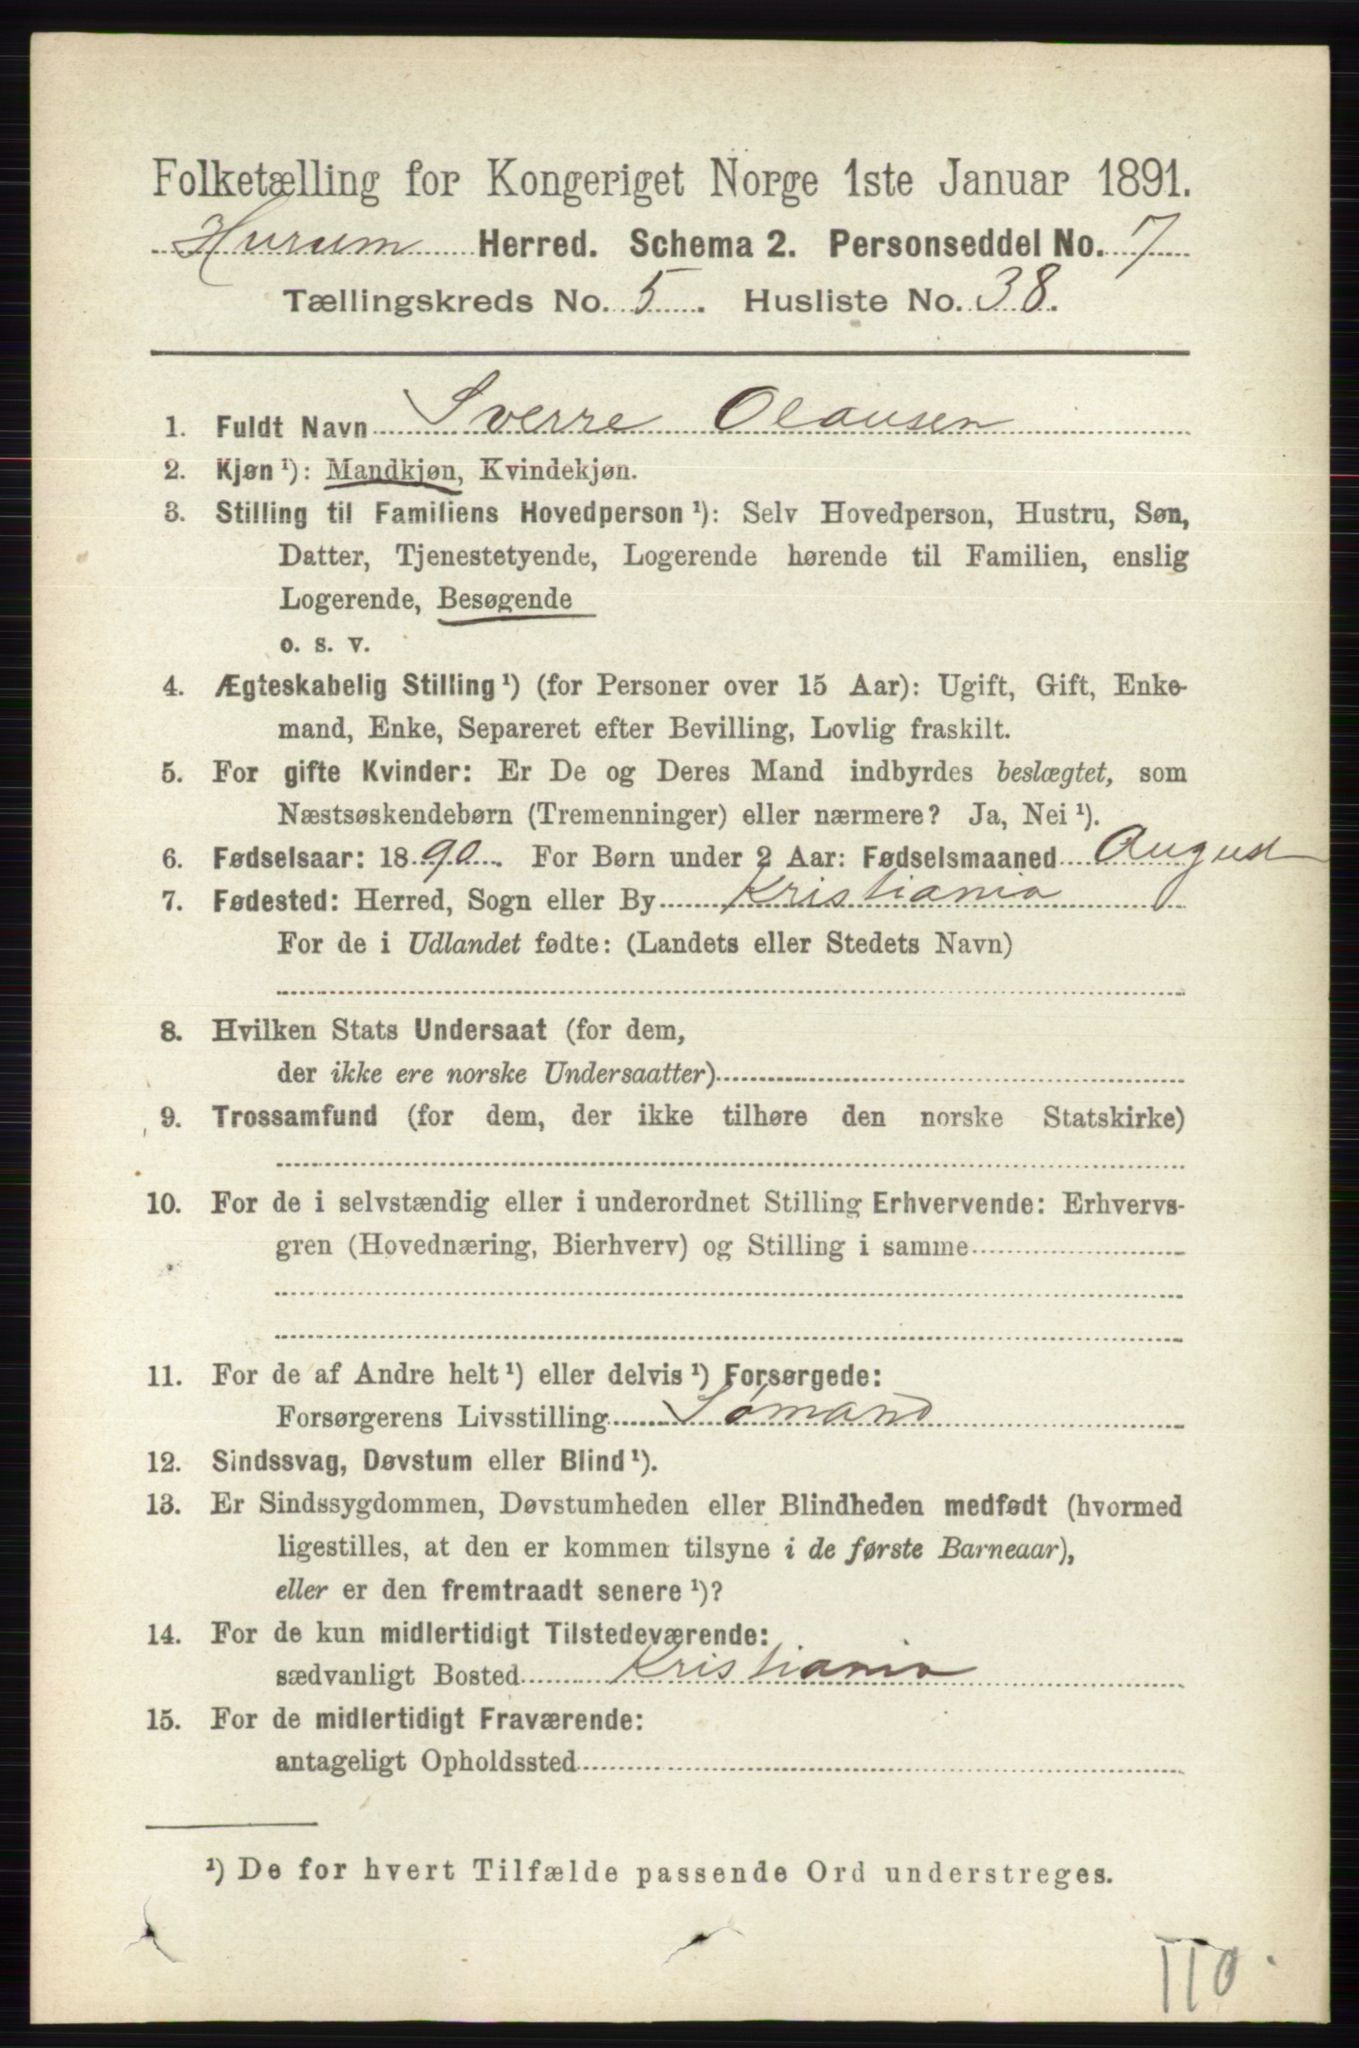 Folketælling for Kongeriget Norge 1ste Januar 1891.
Hurum Herred. Schema 2. Personseddel No. 7
Tællingskreds No. 5. Husliste No. 38.
1. Fuldt Navn Sverre Olausen
2. Kjøn¹): Mandkjøn, Kvindekjøn.
3. Stilling til Familiens Hovedperson¹): Selv Hovedperson, Hustru, Søn,
Datter, Tjenestetyende, Logerende hørende til Familien, enslig
Logerende, Besøgende
o. s. v.
4. Ægteskabelig Stilling¹) (for Personer over 15 Aar): Ugift, Gift, Enke-
mand, Enke, Separeret efter Bevilling, Lovlig fraskilt.
5. For gifte Kvinder: Er De og Deres Mand indbyrdes beslægtet, som
Næstsøskendebørn (Tremenninger) eller nærmere? Ja, Nei¹).
6. Fødselsaar: 1890. For Børn under 2 Aar: Fødselsmaaned August
7. Fødested: Herred, Sogn eller By Kristiania
For de i Udlandet fødte: (Landets eller Stedets Navn)
8. Hvilken Stats Undersaat (for dem,
der ikke ere norske Undersaatter)
9. Trossamfund (for dem, der ikke tilhøre den norske Statskirke)
10. For de i selvstændig eller i underordnet Stilling Erhvervende: Erhvervs-
gren (Hovednæring, Bierhverv) og Stilling i samme
11. For de af Andre helt¹) eller delvis¹) Forsørgede:
Forsørgerens Livsstilling Sømand
12. Sindssvag, Døvstum eller Blind¹).
13. Er Sindssygdommen, Døvstumheden eller Blindheden medfødt (hvormed
ligestilles, at den er kommen tilsyne i de første Barneaar),
eller er den fremtraadt senere¹)?
14. For de kun midlertidigt Tilstedeværende:
sædvanligt Bosted Kristiania
15. For de midlertidigt Fraværende:
antageligt Opholdssted
¹) De for hvert Tilfælde passende Ord understreges.
110